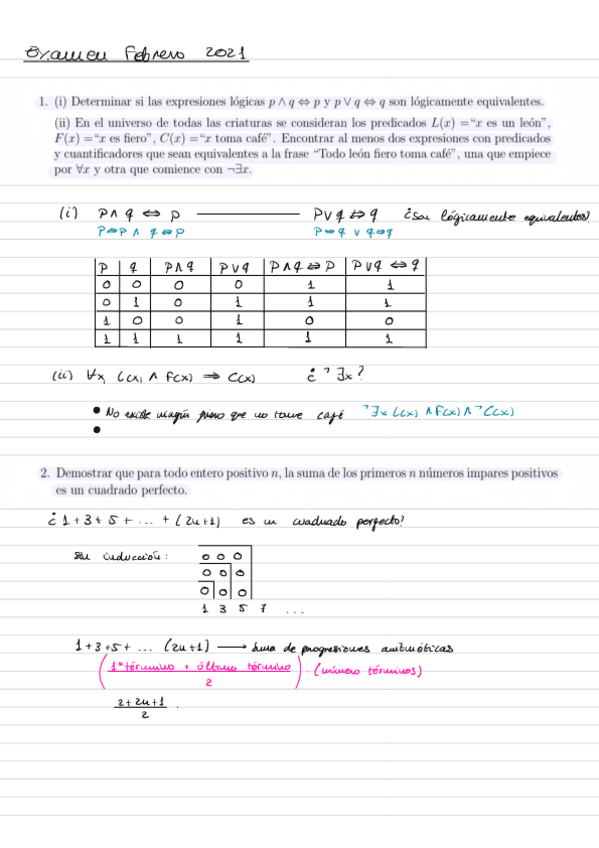 Examen Febrero 2021
1. (i) Determinar si las expresiones lógicas p ∧ q ⇔ p y p ∨ q ⇔ q son lógicamente equivalentes.
(ii) En el universo de todas las criaturas se consideran los predicados L(x) = “x es un león”,
F(x) = “x es fiero”, C(x) = “x toma café”. Encontrar al menos dos expresiones con predicados
y cuantificadores que sean equivalentes a la frase “Todo león fiero toma café”, una que empiece
por ∀x y otra que comience con ¬∃x.
(i) P∧q ⇔ p ——— P∨q ⇔ q ¿son lógicamente equivalentes?
P⇔P ∧ q⇔P P⇔q ∨ q⇔q
P q P∧q P∨q P∧q⇔P P∨q⇔q
0 0 0 0 1 1
0 1 0 1 1 1
1 0 0 1 0 0
1 1 1 1 1 1
(ii) ∀x, L(x) ∧ F(x) ⇒ C(x) ¿¬∃x?
• No existe ningún que no tome café ¬∃x L(x) ∧ F(x) ∧ ¬C(x)
•
2. Demostrar que para todo entero positivo n, la suma de los primeros n números impares positivos
es un cuadrado perfecto.
¿1+3+5+...+(2n+1) es un cuadrado perfecto?
inducción:
0 0 0
0 0 0
0 0 0
1 3 5 7 ...
1+3+5+...(2n+1) ⟶ suma de progresiones aritméticas
(1er término + último término / 2) · (número términos)
2+2n+1 / 2 .